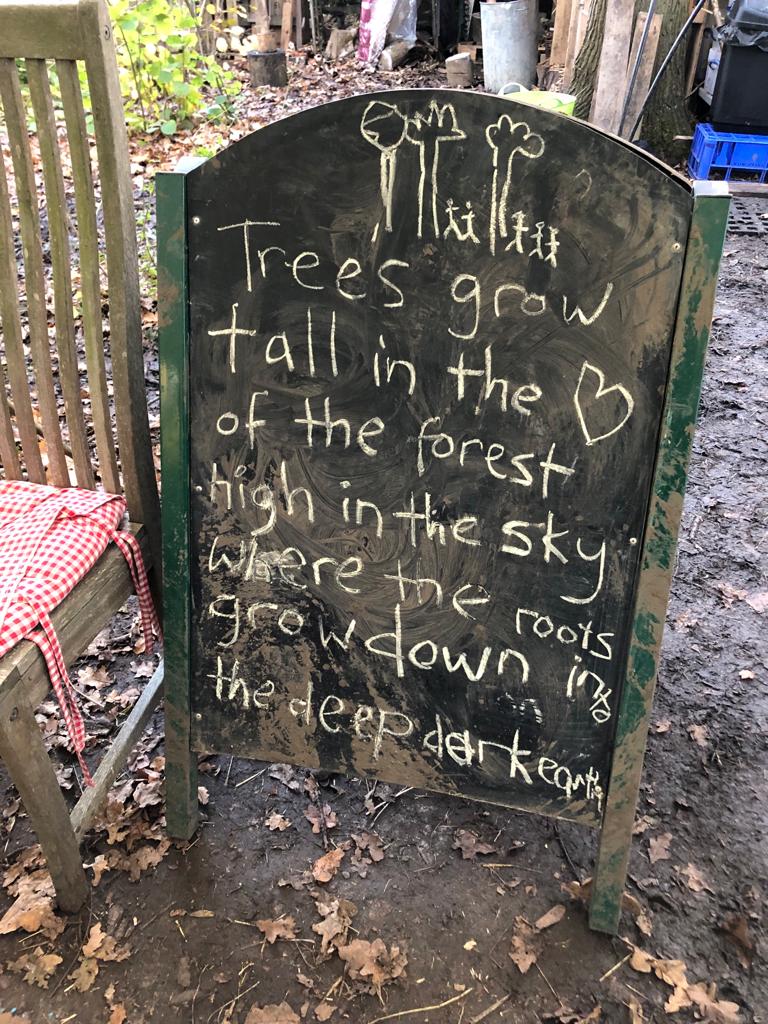 Trees grow
tall in the ♡
of the forest
high in the sky
where the roots
grow down into
the deep dark earth